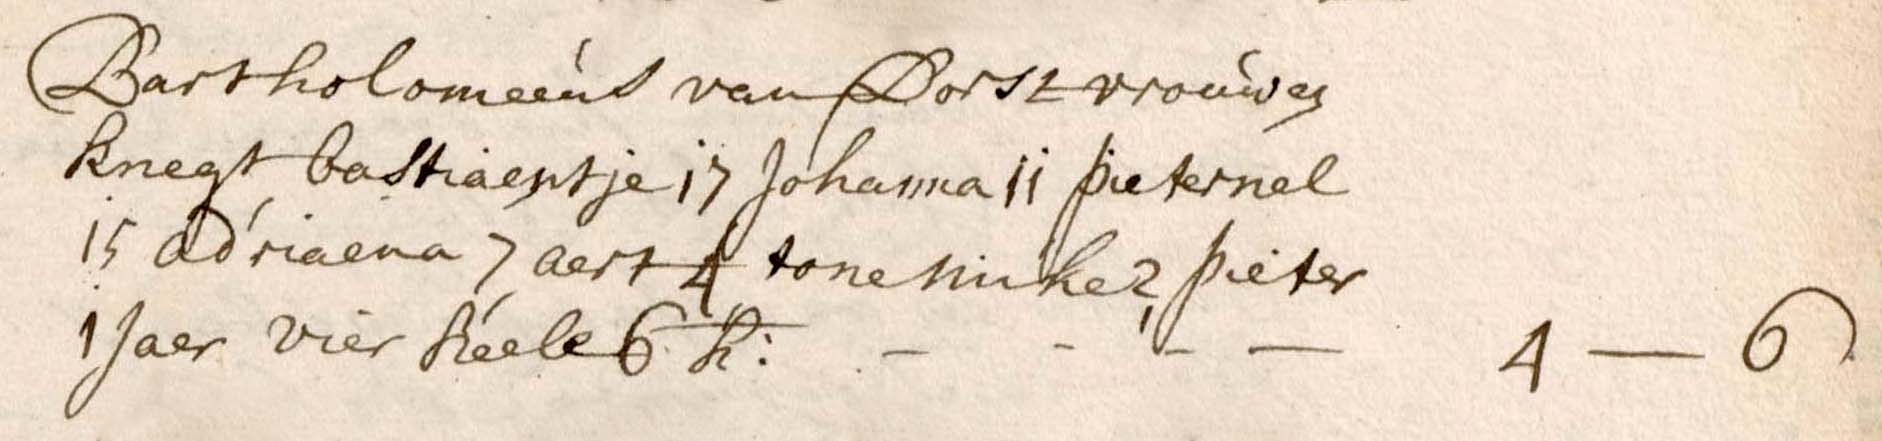 Bartholomeeus van Dorst vrouw en
knegt bastiaentje 17 Johanna 11 pieternel
15 adriaena 7 aert 4 tonesnike 2 pieter
1 Jaer vier heele 6 h: - - - - 4 — 6